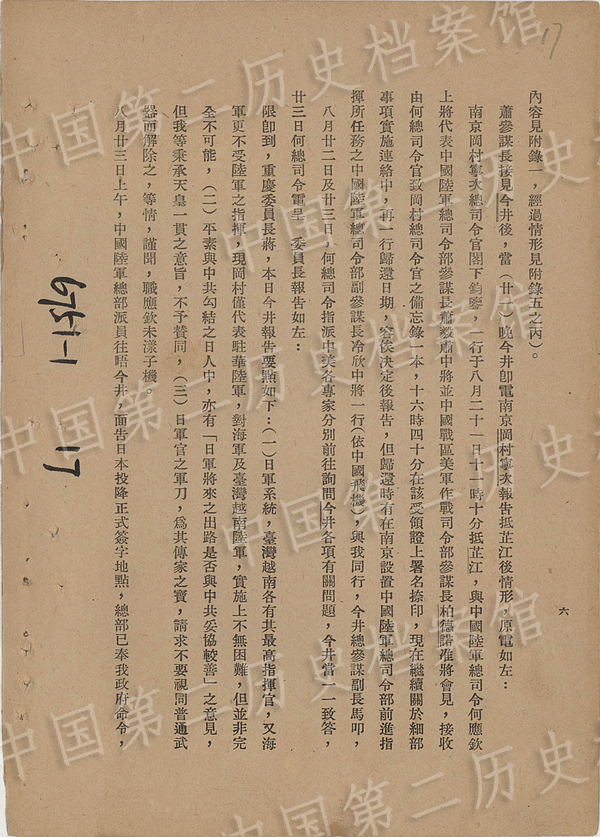 17
內容見附錄一，經過情形見附錄五之內）。
蕭參謀長接見今井後，當（廿一）晚今井卽電南京岡村寧次報告抵芷江後情形，原電如左：
南京岡村寧次總司令官閣下鈞鑒，一行于八月二十一日十一時十分抵芷江，與中國陸軍總司令何應欽
上將代表中國陸軍總司令部參謀長蕭毅肅中將並中國戰區美軍作戰司令部參謀長柏德諾准將會見，接收
由何總司令官致岡村總司令官之備忘錄一本，十六時四十分在該受領證上署名捺印，現在繼續關於細部
事項實施連絡中，再一行歸還日期，容俟决定後報告，但歸還時有在南京設置中國陸軍總司令部前進指
揮所任務之中國陸軍總司令部副參謀長冷欣中將一行（依中國飛機），與我同行，今井總參謀副長馬叩，
八月廿二日及廿三日，何總司令指派中美各專家分別前往詢問今井各項有關問題，今井當一一致答，
廿三日何總司令電呈　委員長報告如左：
限卽到，重慶委員長蔣，本日今井報告要點如下：（一）日軍系統，臺灣越南各有其最高指揮官，又海
軍更不受陸軍之指揮，現岡村僅代表駐華陸軍，對海軍及臺灣越南陸軍，實施上不無困難，但並非完
全不可能，（二）平素與中共勾結之日人中，亦有「日軍將來之出路是否與中共妥協較善」之意見，
但我等秉承天皇一貫之意旨，不予贊同，（三）日軍官之軍刀，爲其傳家之寶，請求不要視同普通武
器而解除之，等情，謹聞，職應欽未漾子機。
八月廿三日上午，中國陸軍總部派員往晤今井，面告日本投降正式簽字地點，總部已奉我政府命令，
六
6751-1
17
中国第二历史档案馆
中国第二历史档案馆
中国第二历史档案馆
中国第二历史档案馆
中国第二历史